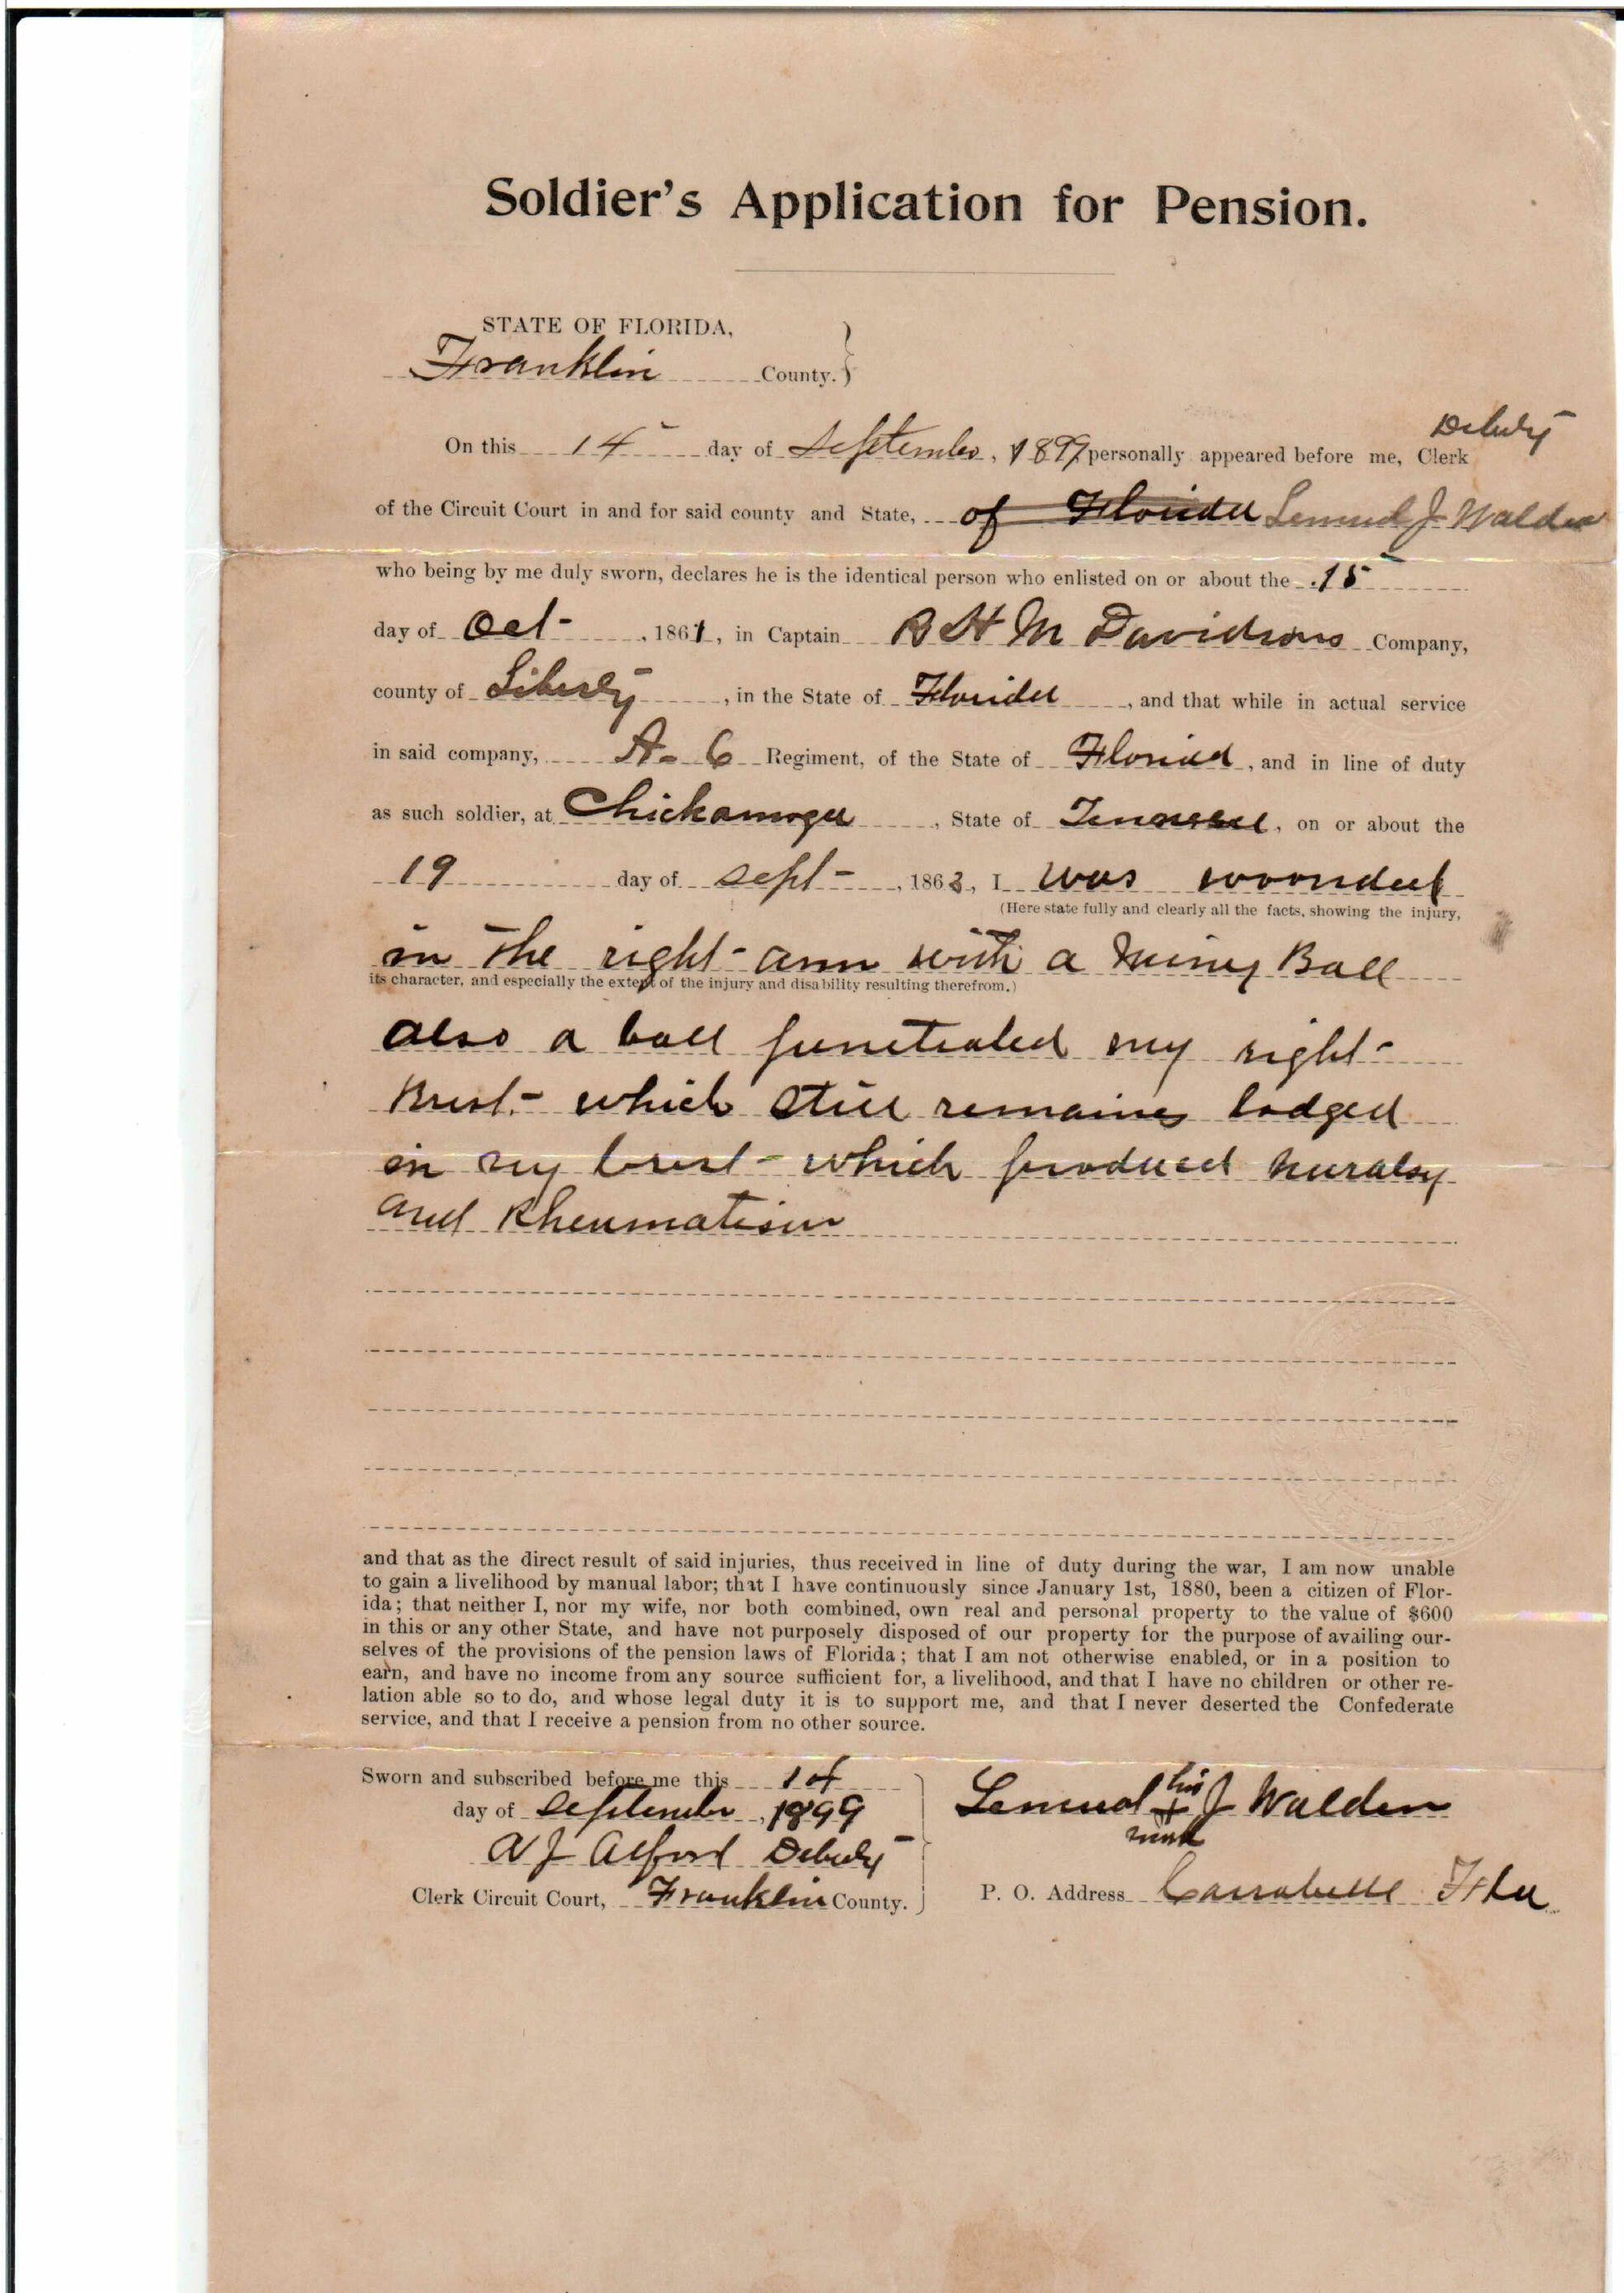 Soldier's Application for Pension.
STATE OF FLORIDA,
Franklin County.
Deputy
On this 14 day of September, 1899 personally appeared before me, Clerk
of the Circuit Court in and for said county and State, of Florida Lemuel J Walden
who being by me duly sworn, declares he is the identical person who enlisted on or about the 15
day of Oct 1861, in Captain R H M Davidsons Company,
county of Liberty, in the State of Florida, and that while in actual service
in said company, A- 6 Regiment, of the State of Florida, and in line of duty
as such soldier, at Chickamoga, State of Tennessee, on or about the
19 day of Sept-, 1863, I was woonded
(Here state fully and clearly all the facts, showing the injury,
in the right arm with a miny Ball
its character, and especially the extent of the injury and disability resulting therefrom.)
also a ball penetrated my right
Brest- which still remains lodged
in my brest- which produced
and Rheumatism
and that as the direct result of said injuries, thus received in line of duty during the war, I am now unable
to gain a livelihood by manual labor; that I have continuously since January 1st, 1880, been a citizen of Flor-
ida; that neither I, nor my wife, nor both combined, own real and personal property to the value of $600
in this or any other State, and have not purposely disposed of our property for the purpose of availing our-
selves of the provisions of the pension laws of Florida; that I am not otherwise enabled, or in a position to
earn, and have no income from any source sufficient for, a livelihood, and that I have no children or other re-
lation able so to do, and whose legal duty it is to support me, and that I never deserted the Confederate
service, and that I receive a pension from no other source.
Sworn and subscribed before me this 14
day of September, 1899
A J Alford Deputy
Clerk Circuit Court, Franklin County.
his
Lemuel + J Walden
mark
P. O. Address Carrabelle Fla